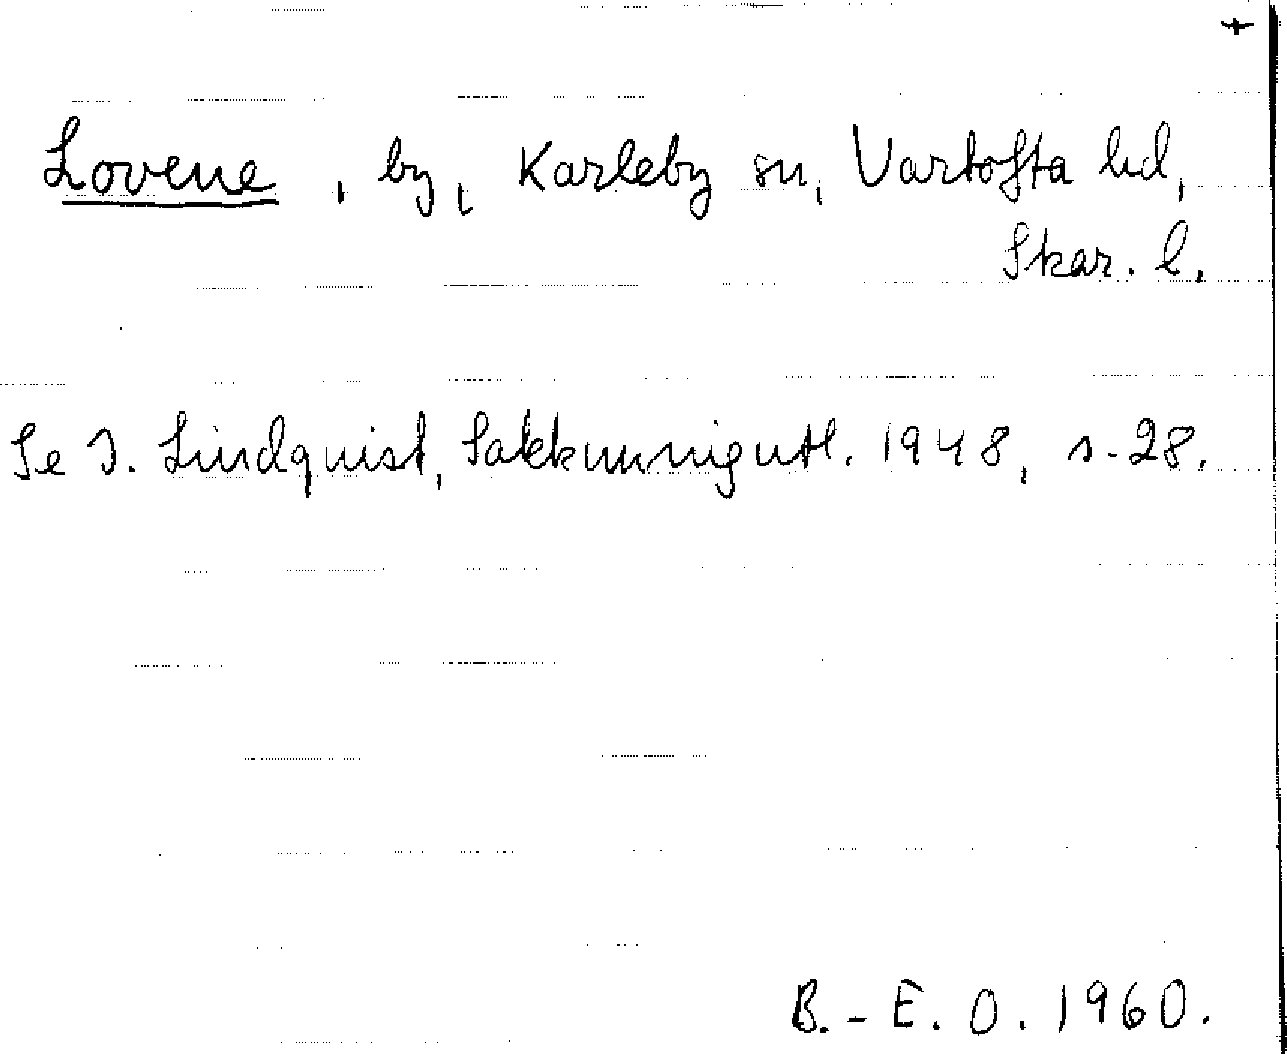 +
Lovene, by, Karleby sn, Vartofta hd,
Skar. l.
Se I. Lindquist, Sakkunnigutl. 1948, s. 28.
B.-E. O. 1960.